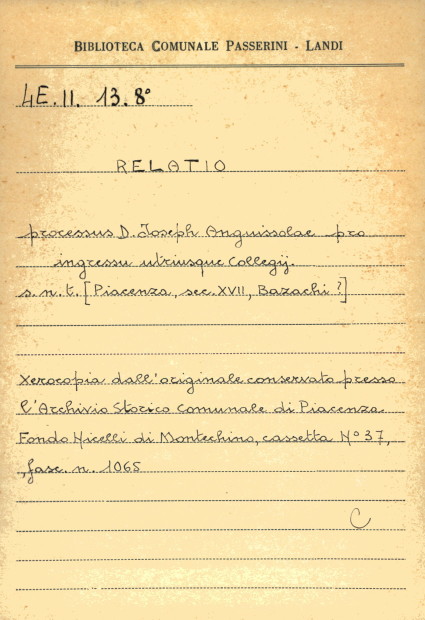 BIBLIOTECA COMUNALE PASSERINI - LANDI
4E. II. 13. 8°
RELATIO
processus D. Joseph Anguissolae pro
ingressu utriusque Collegij.
s. n. t. [Piacenza, sec. XVII, Bazachi ?]
Xerocopia dall'originale conservato presso
l'Archivio Storico Comunale di Piacenza.
Fondo Nicelli di Montechino, cassetta N° 37,
fasc. n. 1065
C